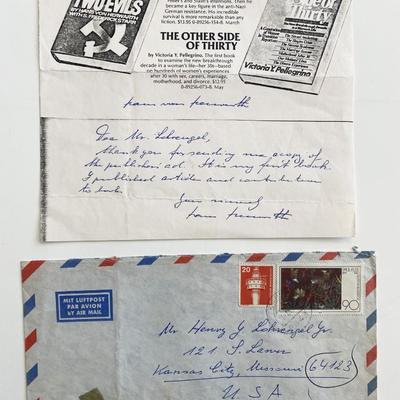 TWO EVILS
HANS VON HERWARTH
WITH S. FREDERICK STARR
Hitler's and Stalin's intentions, then he
became a key figure in the anti-Nazi
German resistance. His incredible
survival is more remarkable than any
fiction. $13.95 0-89256-154-8 March
THE OTHER SIDE
OF THIRTY
by Victoria Y. Pellegrino. The first book
to examine the new breakthrough
decade in a woman's life—her 30s—based
on hundreds of women's experiences
after 30 with sex, careers, marriage,
motherhood, and divorce. $12.95
0-89256-073-8. May
Side of
Thirty
Victoria Y. Pellegrino
Dear Mr. Lohrengel,
thank you for sending me a copy of
the published ad. It is my first book
I published articles and contributions
to books.
20
MIT LUFTPOST
PAR AVION
BY AIR MAIL
90
Mr Henry G Lohrengel Jr.
121 S. Lawn
Kansas City, Missouri 64123
USA